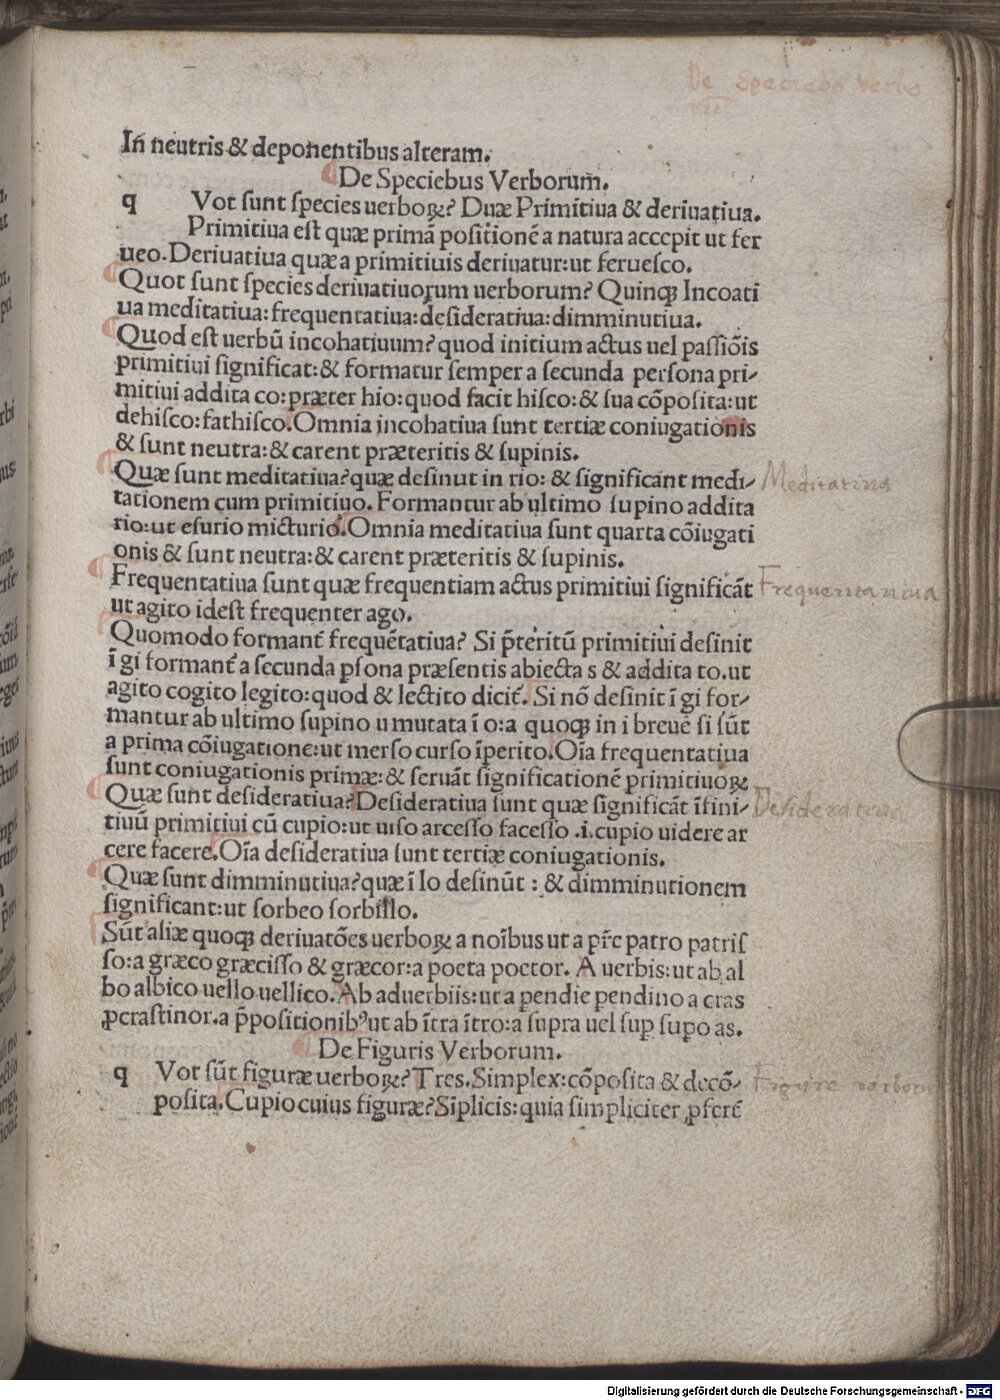 De Speciebus Verbo
In neutris & deponentibus alteram.
De Speciebus Verborum.
q Vot ſunt ſpecies uerboꝝ? Duæ Primitiua & deriuatiua.
Primitiua eſt quæ primā poſitionē a natura accepit ut fer
ueo. Deriuatiua quæ a primitiuis deriuatur: ut ferueſco.
Quot ſunt ſpecies deriuatiuorum uerborum? Quinqꝫ Incoati
ua meditatiua: frequentatiua: deſideratiua: dimminutiua.
Quod eſt uerbū incohatiuum? quod initium actus uel paſſiōis
primitiui ſignificat: & formatur ſemper a ſecunda perſona pri⸗
mitiui addita co: præter hio: quod facit hiſco: & ſua cōpoſita: ut
dehiſco: fathiſco. Omnia incohatiua ſunt tertiæ coniugationis
& ſunt neutra: & carent præteritis & ſupinis.
Quæ ſunt meditatiua? quæ deſinut in rio: & ſignificant medi⸗
Meditatiua
tationem cum primitiuo. Formantur ab ultimo ſupino addita
rio: ut eſurio micturio. Omnia meditatiua ſunt quarta cōiugati
onis & ſunt neutra: & carent præteritis & ſupinis.
Frequentatiua ſunt quæ frequentiam actus primitiui ſignificāt
Frequentatiua
ut agito ideſt frequenter ago.
Quomodo formant̄ frequētatiua? Si p̄teritū primitiui deſinit
ī gi formant̄ a ſecunda ꝑſona præſentis abiecta s & addita to. ut
agito cogito legito: quod & lectito dicit̄. Si nō deſinit ī gi for⸗
mantur ab ultimo ſupino u mutata ī o: a quoqꝫ in i breuē ſi ſūt
a prima cōiugatione: ut merſo curſo īperito. Oīa frequentatiua
ſunt coniugationis primæ: & ſeruāt ſignificationē primitiuoꝝ
Quæ ſunt deſideratiua? Deſideratiua ſunt quæ ſignificāt īfini⸗
Deſideratiua
tiuū primitiui cū cupio: ut uiſo arceſſo faceſſo .i. cupio uidere ar
cere facere. Oīa deſideratiua ſunt tertiæ coniugationis.
Quæ ſunt dimminutiua? quæ ī lo deſinūt : & dimminutionem
ſignificant: ut ſorbeo ſorbillo.
Sūt aliæ quoqꝫ deriuatōes uerboꝝ a noībus ut a pr̄e patro patriſ
ſo: a græco græciſſo & græcor: a poeta poetor. A uerbis: ut ab al
bo albico uello uellico. Ab aduerbiis: ut a pendie pendino a cras
ꝓcraſtinor. a p̄poſitionibꝰ ut ab ītra ītro: a ſupra uel ſuꝑ ſupo as.
De Figuris Verborum.
q Vot ſūt figuræ uerboꝝ? Tres. Simplex: cōpoſita & decō⸗
Figure verborū
poſita. Cupio cuius figuræ? Sīplicis: quia ſimpliciter ꝓfert̄
Digitalisierung gefördert durch die Deutsche Forschungsgemeinschaft - DFG